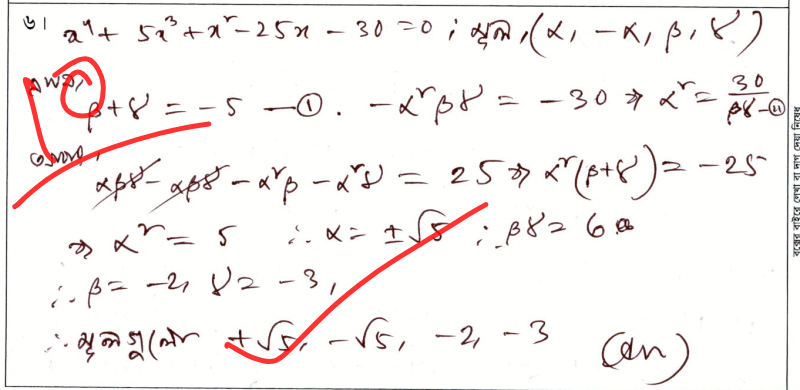 ৬। x⁴ + 5x³ + x² - 25x - 30 = 0 ; মূল, (α, -α, β, γ)
এখন,
β+γ = -5 —① . -α²βγ = -30 ⇒ α² = 30/βγ —⑪
αβγ - αβγ - α²β - α²γ = 25 ⇒ α²(β+γ) = -25
⇒ α² = 5 ∴ α = ±√5 ; βγ = 6
∴ β = -2, γ = -3,
∴ মূলগুলো +√5, -√5, -2, -3 (An)
বক্সের বাইরে লেখা বা দাগ দেয়া নিষেধ